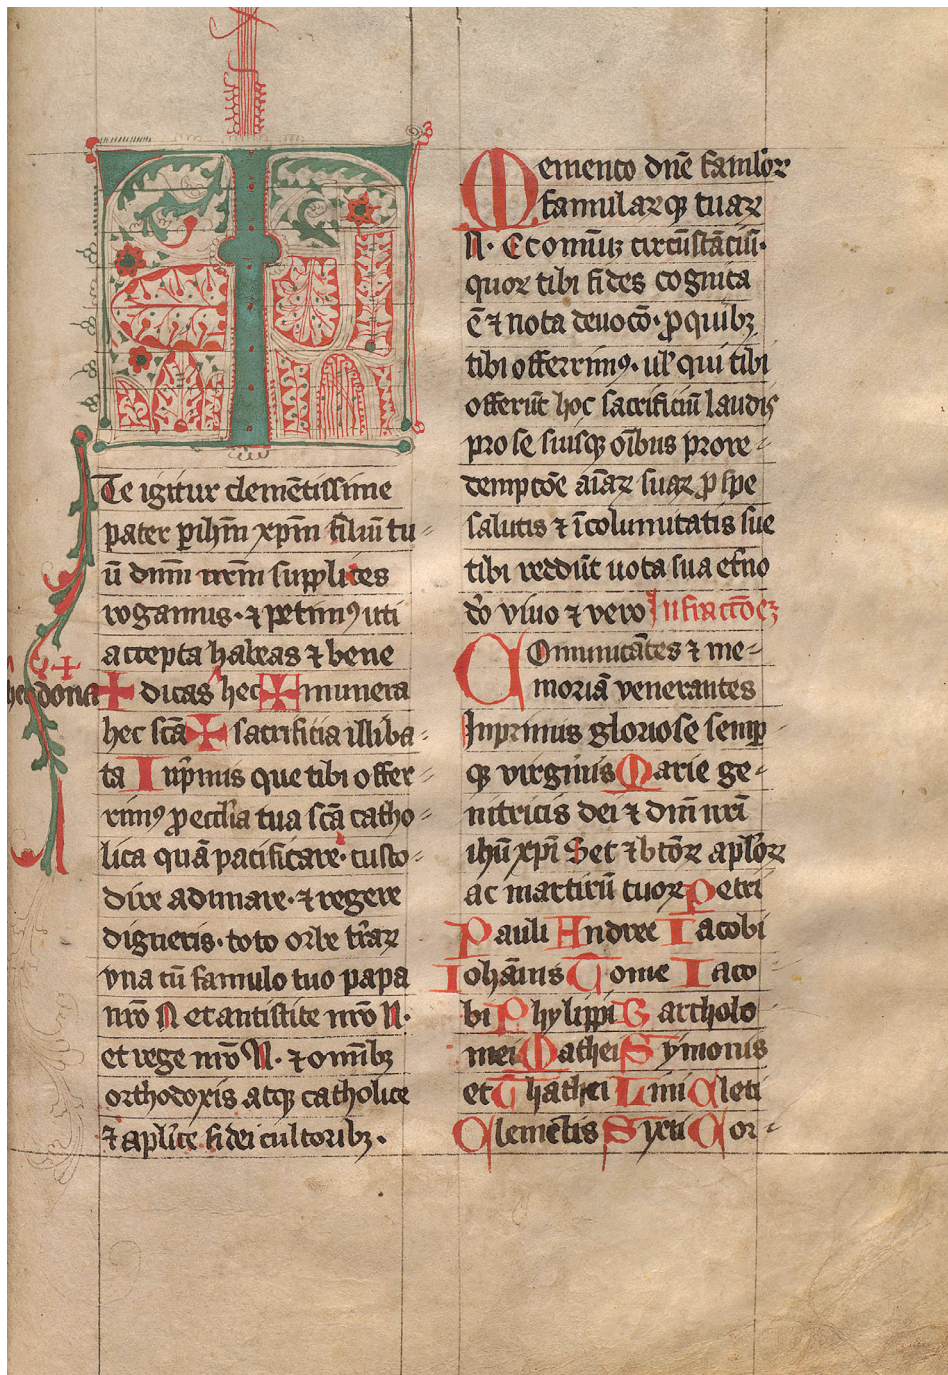 Te igitur clemētissime
pater p ihm̄ xpm̄ filiū tu⸗
ū dnm̄ nrm̄ supplices
rogamus · ⁊ petimꝰ uti
accepta habeas ⁊ bene
hec dona ✠ dicas hec ✠ munera
hec scā ✠ sacrificia illiba⸗
ta Inpͥmis que tibi offer⸗
rimꝰ ꝓ ecclīa tua scā catho⸗
lica quā pacificare · custo⸗
dire adunare · ⁊ regere
digneris · toto orbe tr̄aꝝ
vna cū famulo tuo papa
nrō N et antistite nrō N ·
et rege nrō N · ⁊ omībꝫ
orthodoxis atqꝫ catholice
⁊ aplīce fidei cultoribꝫ ·
Memento dnē famloꝝ
famularqꝫ tuaꝝ
N · Et omīuꝫ circūstāciū ·
quoꝝ tibi fides cognita
ē ⁊ nota deuocō · ꝓ quibꝫ
tibi offerrimꝰ · ul̄ qui tibi
offerūt hoc sacrificiū laudis
pro se suisqꝫ oībus pro re⸗
dempcōe aīaꝝ suaꝝ ꝓ spe
salutis ⁊ īcolumitatis sue
tibi reddūt uota sua et̄no
dō viuo ⁊ vero Infra accōeꝫ
Comunicātes ⁊ me⸗
moriā venerantes
Inprimis gloriose semp
qꝫ virginis Marie ge⸗
nitricis dei ⁊ dnī nrī
ihū xpī Set ⁊ btōꝝ aplōꝝ
ac martirū tuoꝝ Petri
Pauli Andree Iacobi
Iohānis Tome Iaco
bi Phylippi Bartholo
mei Mathei Symonis
et Thathei Lini Cleti
Clemētis Syxti Cor⸗